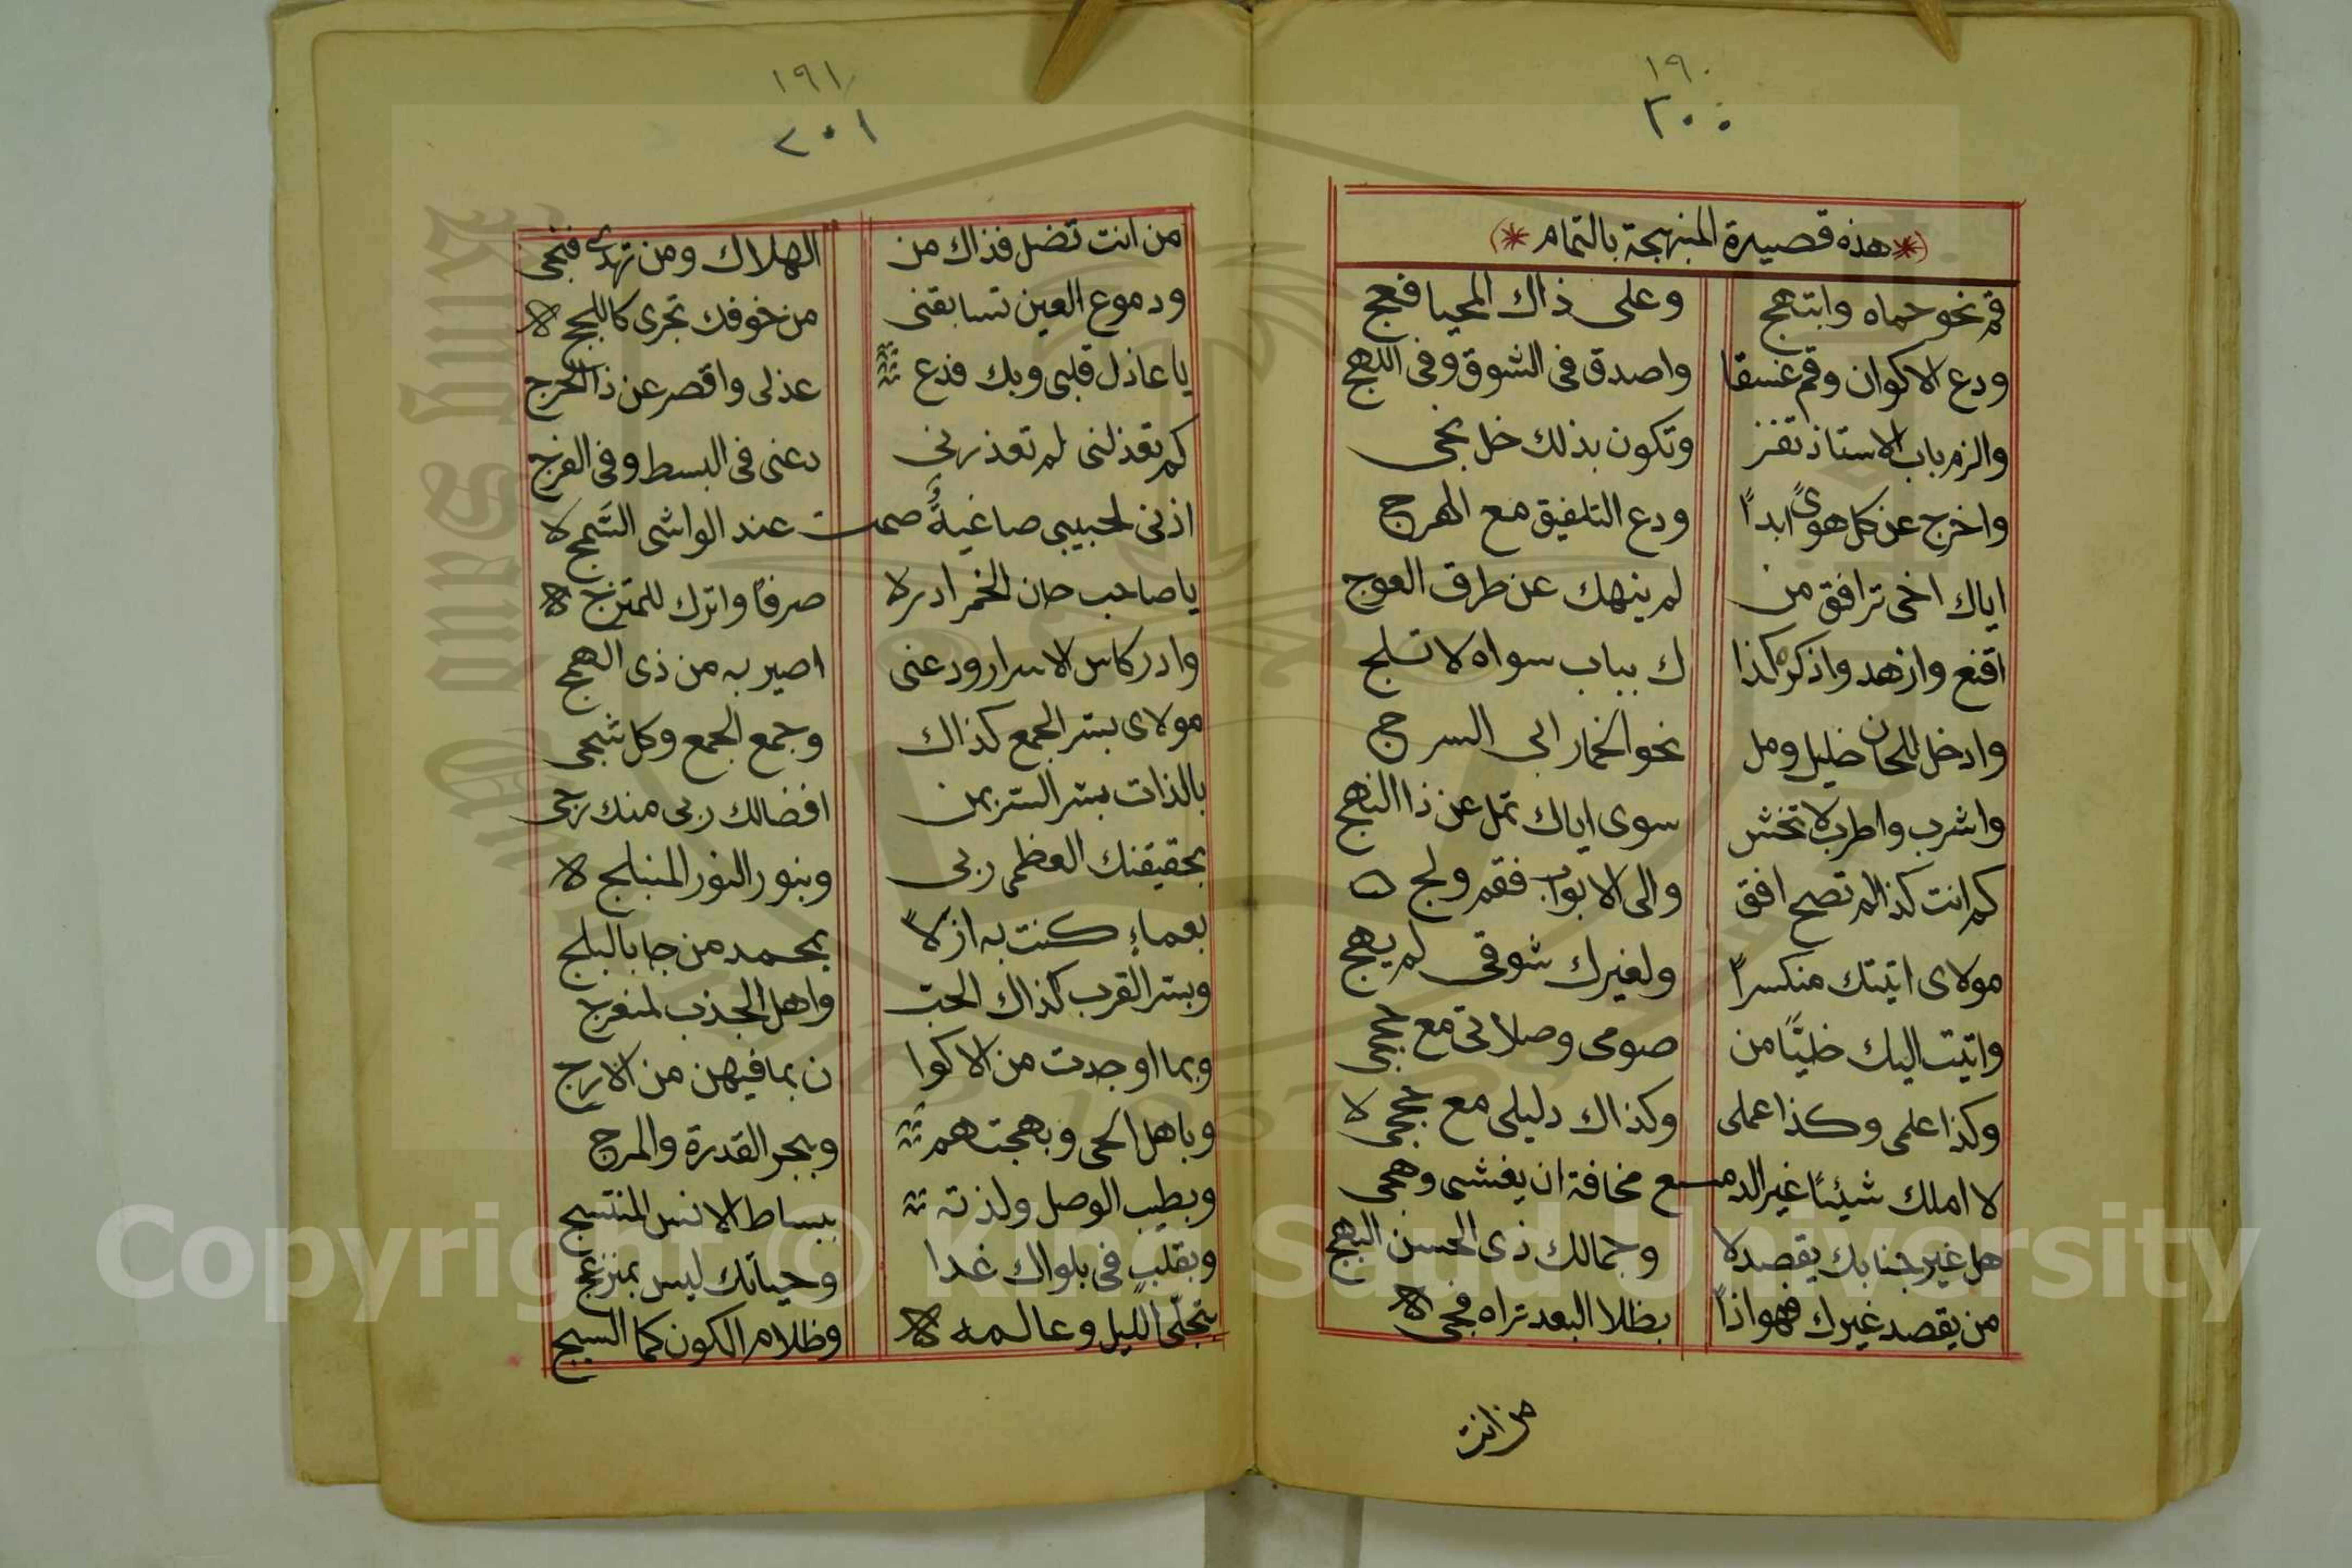 ١٩٠
٢٠٠
(* هذه قصيدة المنبهجة بالتمام *)
قم نحو حماه وابتهج وعلى ذاك المحيا فعج
ودع الاكوان وقم غسقا واصدق فى الشوق وفى اللهج
والزم باب الاستاذ تفز وتكون بذلك خل نجى
واخرج عن كل هوىً ابداً ودع التلفيق مع الهرج
اياك اخى ترافق من لم ينهك عن طرق العوج
اقنع وازهد واذكره كذا ك بباب سواه لا تلج
وادخل للحان خليل ومل نحو الخمار ابى السرج
واشرب واطرب لا تخش سوى اياك تمل عن ذا النهج
كم انت كذا لم تصح افق والى الابواب فقم ولج
مولاى اتيتك منكسراً ولغيرك شوقى لم يهج
واتيت اليك خليًّا من صومى وصلاتى مع حججى
وكذا علمى وكذا عملى وكذاك دليلى مع حججى لا
لا املك شيئًا غير الدمـ ـع مخافة ان يفشى وهجى
هل غير جنابك يقصد لا وجمالك ذى الحسن البهج
من يقصد غيرك فهو اذاً بظلا البعد تراه فجى
من انت
١٩١
٢٠١
من انت تضل فذاك من الهلاك ومن تهدى فنجى
ودموع العين تسابقنى من خوفك تجرى كاللجج
يا عاذل قلبى وبك فدع عذلى واقصر عن ذا الحرج
كم تعذلنى لم تعذرنى دعنى فى البسط وفى الفرج
اذنى لحبيبى صاغيةٌ صمت عند الواشى السَّمج لا
يا صاحب حان الخمر ادر لا صرفًا واترك للممتزج
وادر كاس الاسرار ودعنى اصير به من ذى الهمج
مولاى بسر الجمع كذاك وجمع الجمع وكل شجى
بالذات بسر السر بمن افضالك ربى منك رجى
بحقيقتك العظمى ربى وبنور النور المنبلج لا
بعماءٍ كنت به ازلاً بمحمد من جا بالبلج
وبسر القرب كذاك الحب واهل الجذب لمنعرج
وبما اوجدت من الاكوا ن بما فيهن من الارج
وباهل الحى وبهجتهم وببحر القدرة والمرج
وبطيب الوصل ولذته ببساط الانس المنتسج
وبقلبٍ فى بلواك غدا وحياتك ليس بمنزعج
بتجلى الليل وعالمه وظلام الكون كما السبج
Copyright © King Saud University